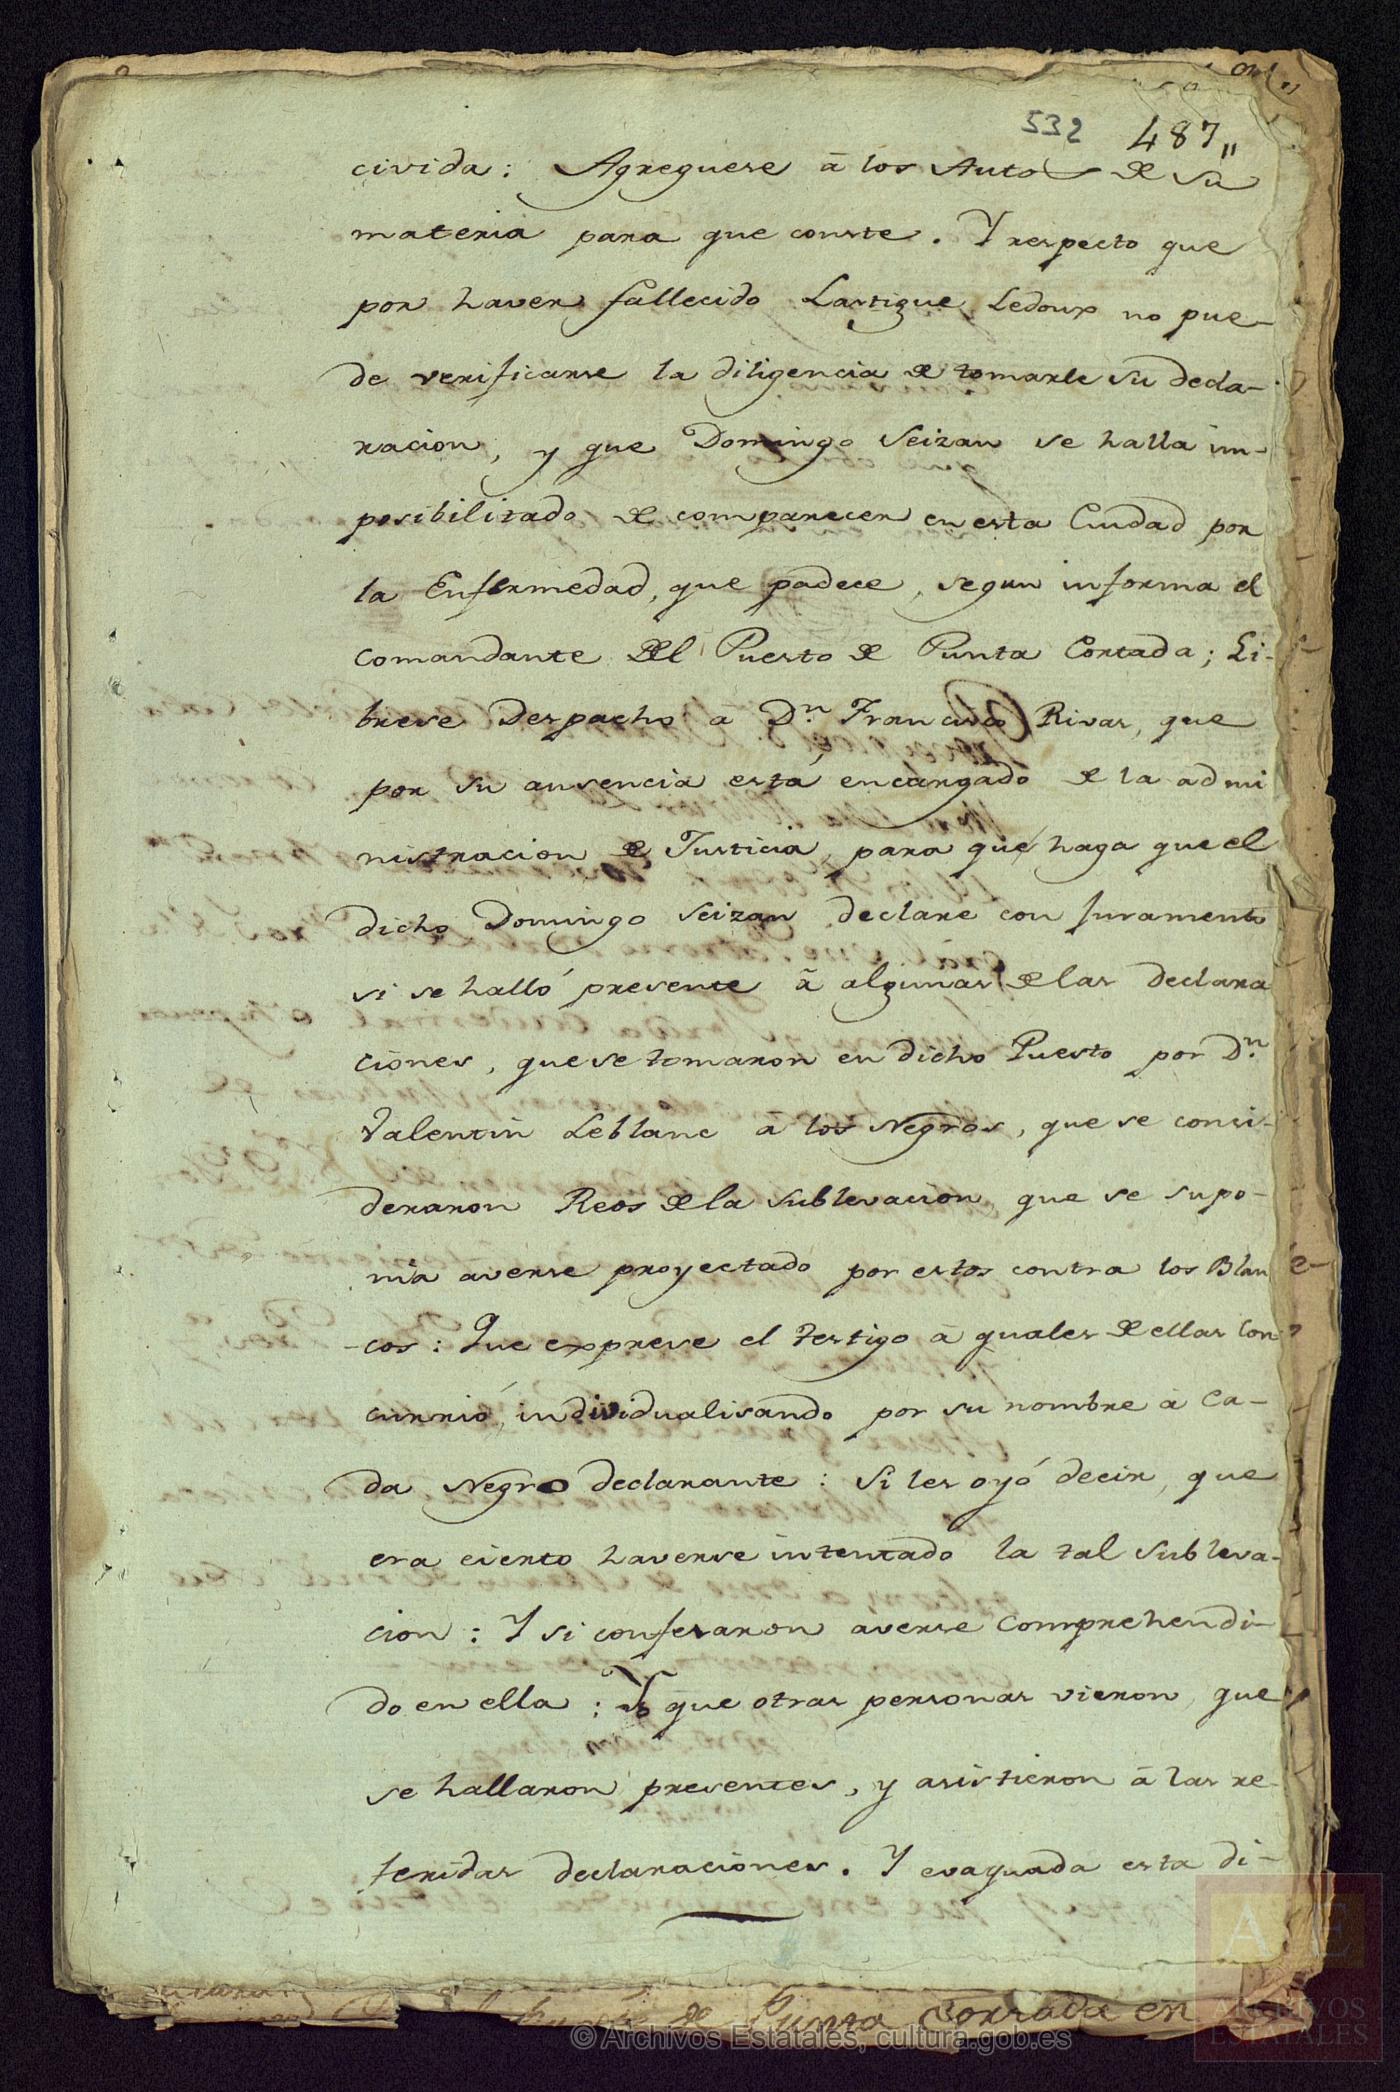 532 487,,
civida: Agreguese â los Autos de su
materia para que conste. Y respecto que
por haver fallecido Lastigue Ledoux no pue-
de verificarse la diligencia de tomarle su decla-
racion, y que Domingo Seizan se halla im-
posibilitado de comparecer en esta Ciudad por
la Enfermedad, que padece, segun informa el
Comandante del Puesto de Punta Cortada; Li-
brese Despacho a Dn. Francisco Rivas, que
por su ausencia está encargado de la admi
nistracion de Justicia, para que haga que el
dicho Domingo Seizan declare con juramento
si se halló presente â algunas de las declara
ciones, que se tomaron en dicho Puesto por Dn.
Valentin Leblanc a los Negros, que se consi-
deraron Reos de la sublevacion que se supo-
nia averse proyectado por estos contra los Blan
-cos: Que exprese el testigo â quales de ellas con
currió, individualisando por su nombre a ca-
da Negro declarante: Si les oyó decir, que
era cierto haverse intentado la tal subleva-
cion: Y si confesaron averse comprehendi-
do en ella: Y que otras personas vieron, que
se hallaron presentes, y asistieron â las re-
feridas declaraciones. Y evaquada esta di-
de Punta Cortada en
© Archivos Estatales, cultura.gob.es
AE
ARCHIVOS
ESTATALES